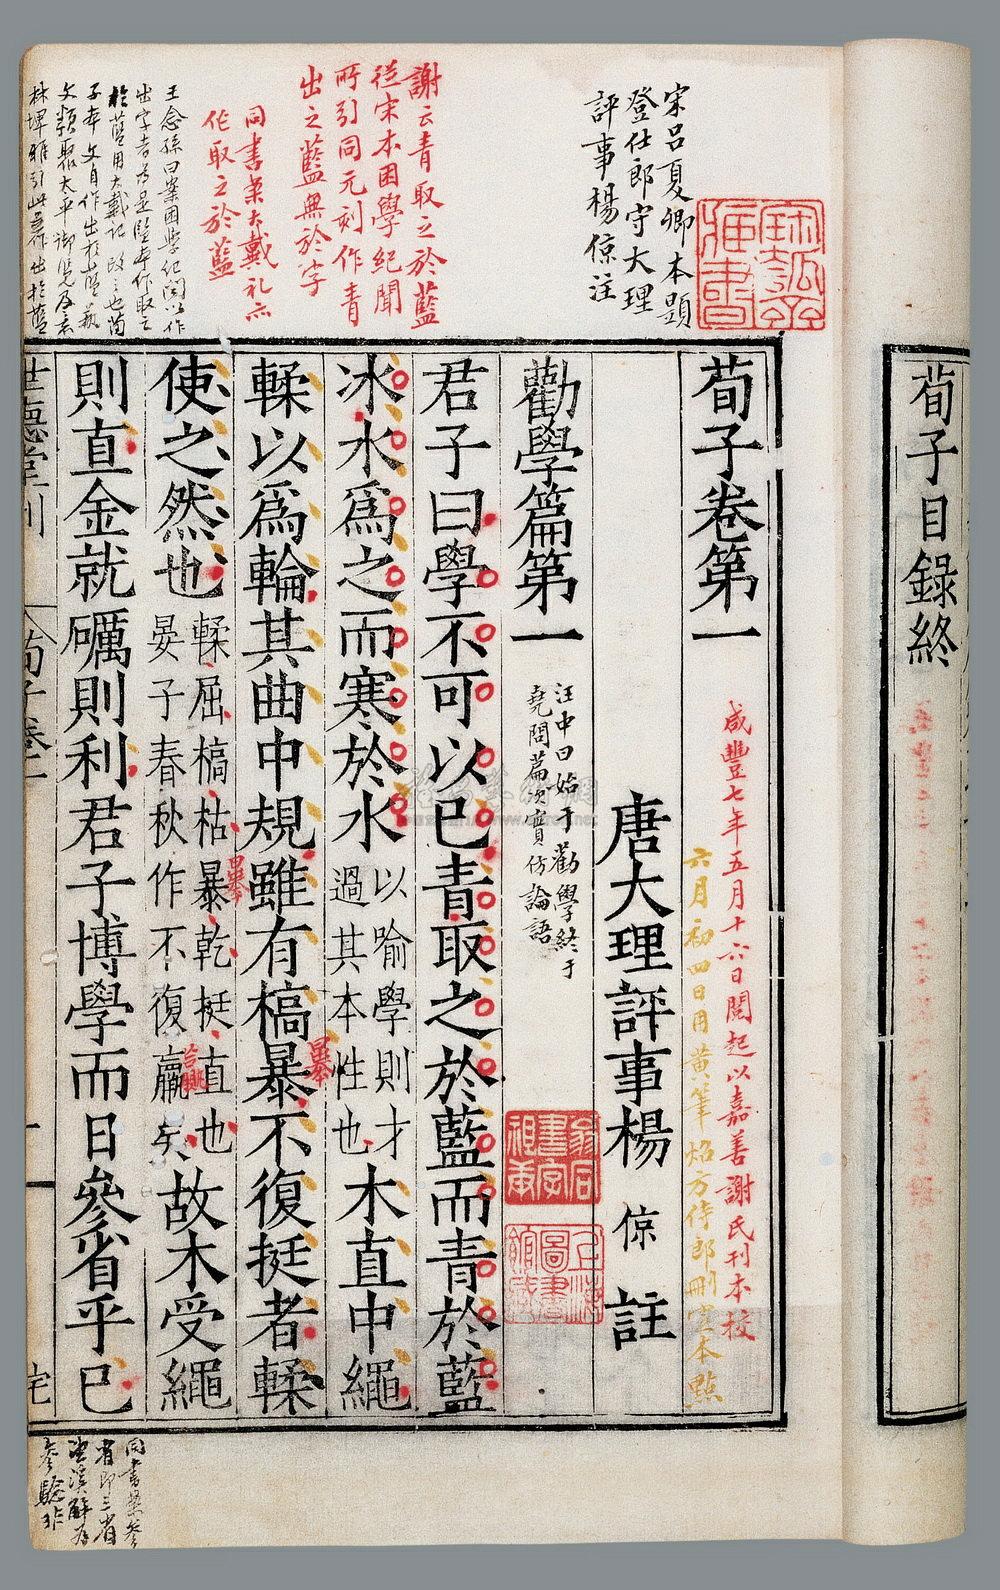 荀子目錄終
宋呂夏卿本題
登仕郎守大理
評事楊倞注
謝云青取之於藍
從宋本困學紀聞
所引同元刻作青
出之藍無於字
同書案大戴礼亦
作取之於藍
王念孫曰案困學紀聞以作
出字者為是監本作取之
於藍用大戴記改之也荀
子本文自作出於藍藝
文類聚太平御覽及意
林埤雅引此並作出於藍
荀子卷第一
咸豐七年五月十六日閱起以嘉善謝氏刊本校
六月初四日用黄筆焰方侍郎刪定本點
唐大理評事楊 倞 註
勸學篇第一
汪中曰始于勸學終于
堯問篇次實仿論語
君子曰學不可以已青取之於藍而青於藍
冰水為之而寒於水以喻學則才過其本性也木直中繩
輮以為輪其曲中規雖有槁暴不復挺者輮
使之然也輮屈槁枯暴乾挺直也晏子春秋作不復贏矣故木受繩
則直金就礪則利君子博學而日參省乎已
世德堂刊
荀子卷一
同書案參
省即三省
望溪解為
參驗非